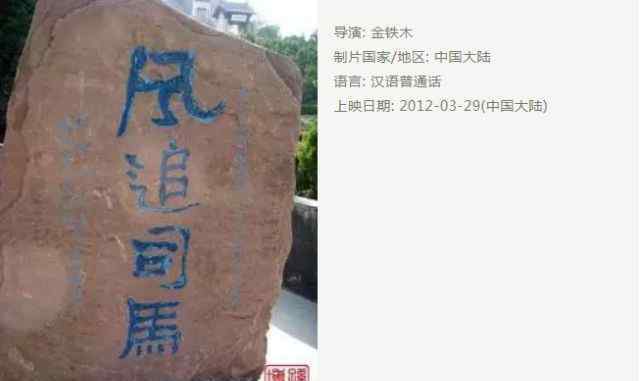 风追司马
导演: 金铁木
制片国家/地区: 中国大陆
语言: 汉语普通话
上映日期: 2012-03-29(中国大陆)